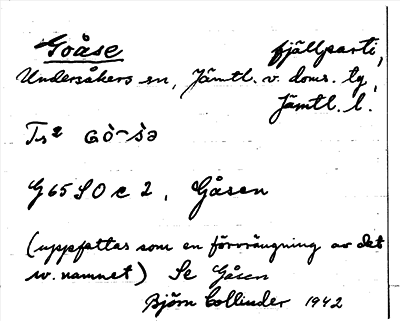 Goåse fjällparti,
Undersåkers sn, Jämtl. v. doms. tg,
Jämtl. l.
G 65 SO c 2, Gåsen
(uppfattas som en förvrängning av det
sv. namnet) Se Gåsen
Björn Collinder 1942